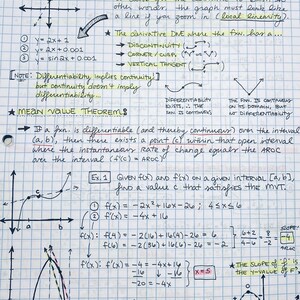 other words, the graph must look like
a line if you zoom in (local linearity).
① y = 2x + 1
② y = 2x + 0.001
③ y = sin 2x + 0.001
★ The derivative DNE where the fxn. has a...
→ DISCONTINUITY
→ CORNER / CUSP
→ VERTICAL TANGENT
NOTE: Differentiability implies continuity!
but continuity doesn't imply
differentiability.
DIFFERENTIABILITY
THE FXN. IS CONTINUOUS
ON ITS DOMAIN, BUT
★ MEAN VALUE THEOREM
→ If a fxn. is differentiable (and thereby continuous) over the interval
(a, b), then there exists a point (c) within that open interval
where the instantaneous rate of change equals the AROC
over the interval (f'(c) = AROC)
Ex. 1 Given f(x) and f'(x) on a given interval [a, b],
find a value c that satisfies the MVT.
① f(x) = -2x² + 16x - 26 ; 4 ≤ x ≤ 6
② f'(x) = -4x + 16
f(x): f(4) = -2(16) + 16(4) - 26 = 6
f(6) = -2(36) + 16(6) - 26 = -2
6+2 / 4-6 = 8 / -2
-4
f'(x): f'(x) = -4 = -4x + 16
-16 -16
-20 = -4x
x = 5
★ THE SLOPE OF